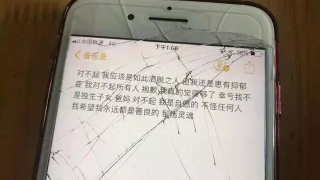 中国联通 4G
下午1:50
备忘录
对不起 我应该是如此洒脱之人 但我还是患有抑郁
症 我对不起所有人 抱歉 我真的觉得够了 幸亏我不
是独生子女 爸妈 对不起 我是自愿的 不怪任何人
我希望我永远都是善良的 包括灵魂